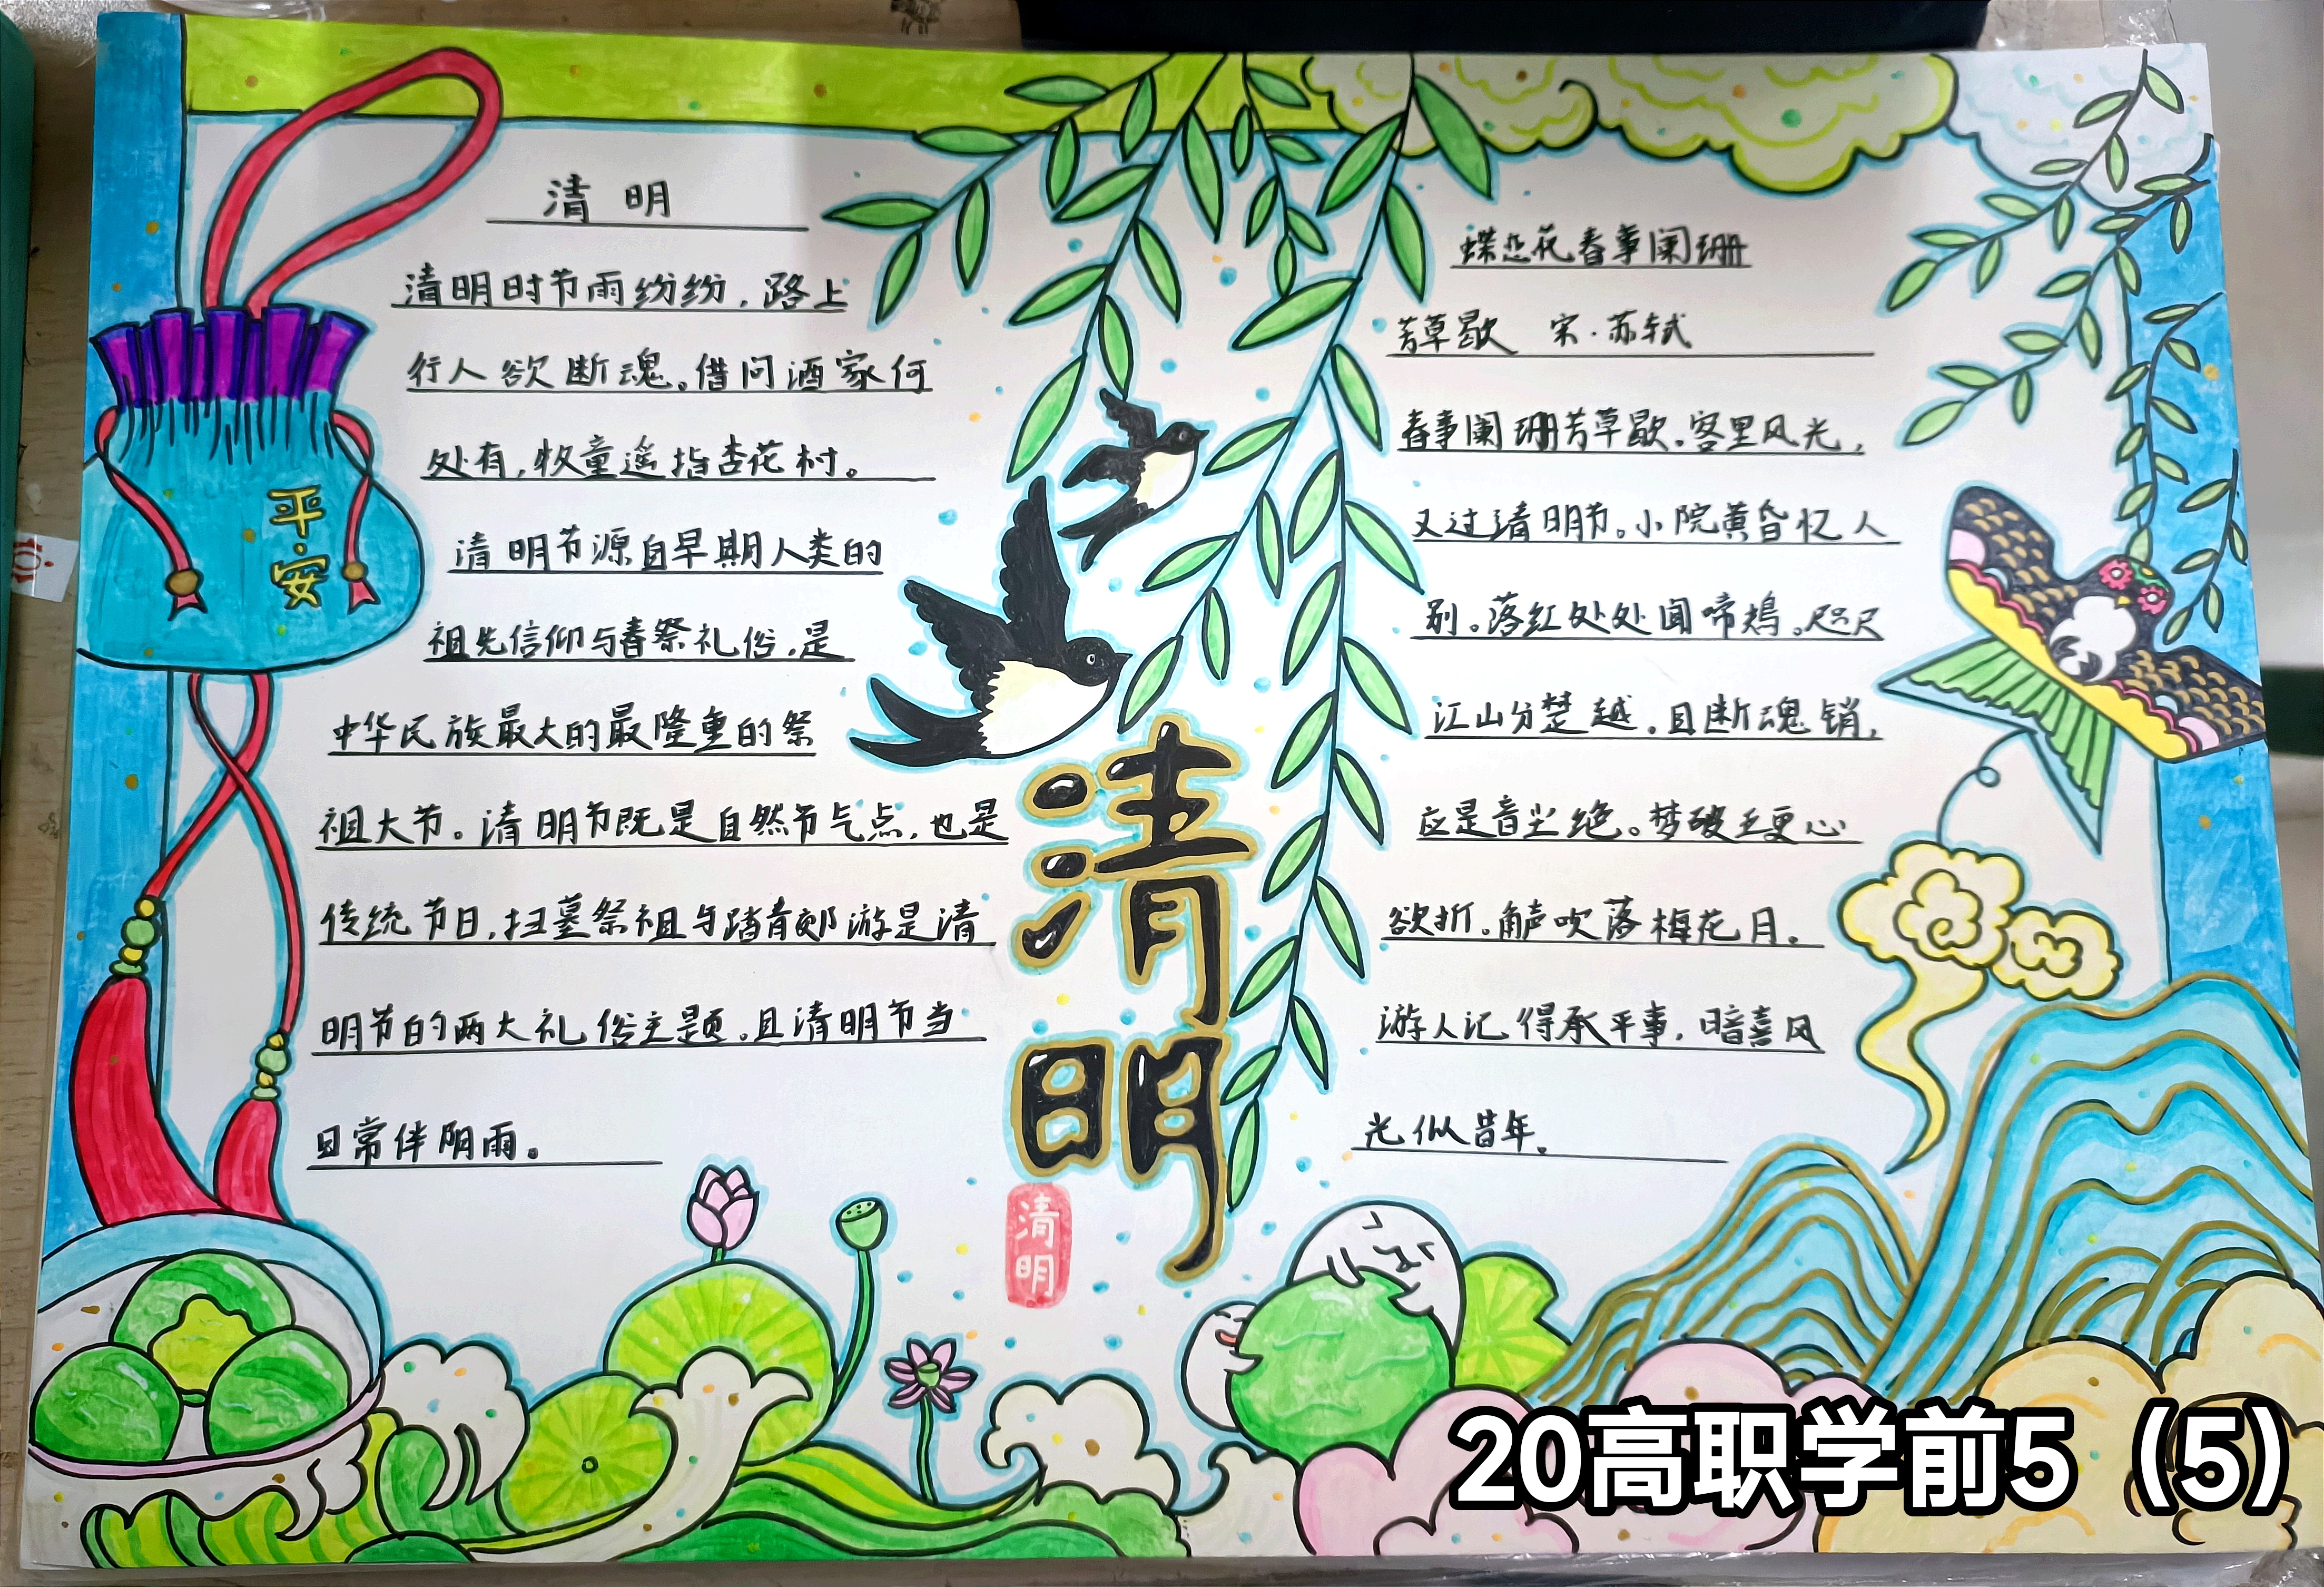 平安
清明
清明时节雨纷纷，路上
行人欲断魂。借问酒家何
处有，牧童遥指杏花村。
清明节源自早期人类的
祖先信仰与春祭礼俗，是
中华民族最大的最隆重的祭
祖大节。清明节既是自然节气点，也是
传统节日，扫墓祭祖与踏青郊游是清
明节的两大礼俗主题。且清明节当
日常伴阴雨。
清明
清明
蝶恋花春事阑珊
芳草歇 宋·苏轼
春事阑珊芳草歇。客里风光，
又过清明节。小院黄昏忆人
别。落红处处闻啼鴂。咫尺
江山分楚越。且断魂销，
应是音尘绝。梦破五更心
欲折。角声吹落梅花月。
游人记得承平事，暗喜风
光似昔年。
20高职学前5（5）